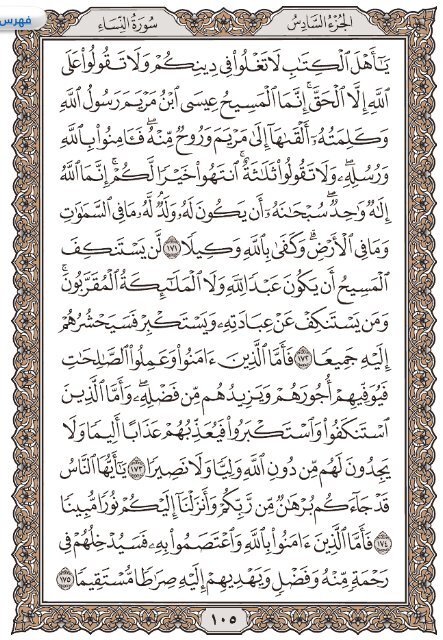 فهرس
سُورَةُ النِّسَاءِ
الجُزْءُ السَّادِسُ
يَـٰٓأَهْلَ ٱلْكِتَـٰبِ لَا تَغْلُوا۟ فِى دِينِكُمْ وَلَا تَقُولُوا۟ عَلَى
ٱللَّهِ إِلَّا ٱلْحَقَّ ۚ إِنَّمَا ٱلْمَسِيحُ عِيسَى ٱبْنُ مَرْيَمَ رَسُولُ ٱللَّهِ
وَكَلِمَتُهُۥٓ أَلْقَىٰهَآ إِلَىٰ مَرْيَمَ وَرُوحٌ مِّنْهُ ۖ فَـَٔامِنُوا۟ بِٱللَّهِ
وَرُسُلِهِۦ ۖ وَلَا تَقُولُوا۟ ثَلَـٰثَةٌ ۚ ٱنتَهُوا۟ خَيْرًا لَّكُمْ ۚ إِنَّمَا ٱللَّهُ
إِلَـٰهٌ وَٰحِدٌ ۖ سُبْحَـٰنَهُۥٓ أَن يَكُونَ لَهُۥ وَلَدٌ ۘ لَّهُۥ مَا فِى ٱلسَّمَـٰوَٰتِ
وَمَا فِى ٱلْأَرْضِ ۗ وَكَفَىٰ بِٱللَّهِ وَكِيلًا ١٧١ لَّن يَسْتَنكِفَ
ٱلْمَسِيحُ أَن يَكُونَ عَبْدًا لِّلَّهِ وَلَا ٱلْمَلَـٰٓئِكَةُ ٱلْمُقَرَّبُونَ ۚ
وَمَن يَسْتَنكِفْ عَنْ عِبَادَتِهِۦ وَيَسْتَكْبِرْ فَسَيَحْشُرُهُمْ
إِلَيْهِ جَمِيعًا ١٧٢ فَأَمَّا ٱلَّذِينَ ءَامَنُوا۟ وَعَمِلُوا۟ ٱلصَّـٰلِحَـٰتِ
فَيُوَفِّيهِمْ أُجُورَهُمْ وَيَزِيدُهُم مِّن فَضْلِهِۦ ۖ وَأَمَّا ٱلَّذِينَ
ٱسْتَنكَفُوا۟ وَٱسْتَكْبَرُوا۟ فَيُعَذِّبُهُمْ عَذَابًا أَلِيمًا وَلَا
يَجِدُونَ لَهُم مِّن دُونِ ٱللَّهِ وَلِيًّا وَلَا نَصِيرًا ١٧٣ يَـٰٓأَيُّهَا ٱلنَّاسُ
قَدْ جَآءَكُم بُرْهَـٰنٌ مِّن رَّبِّكُمْ وَأَنزَلْنَآ إِلَيْكُمْ نُورًا مُّبِينًا
١٧٤ فَأَمَّا ٱلَّذِينَ ءَامَنُوا۟ بِٱللَّهِ وَٱعْتَصَمُوا۟ بِهِۦ فَسَيُدْخِلُهُمْ فِى
رَحْمَةٍ مِّنْهُ وَفَضْلٍ وَيَهْدِيهِمْ إِلَيْهِ صِرَٰطًا مُّسْتَقِيمًا ١٧٥
١٠٥